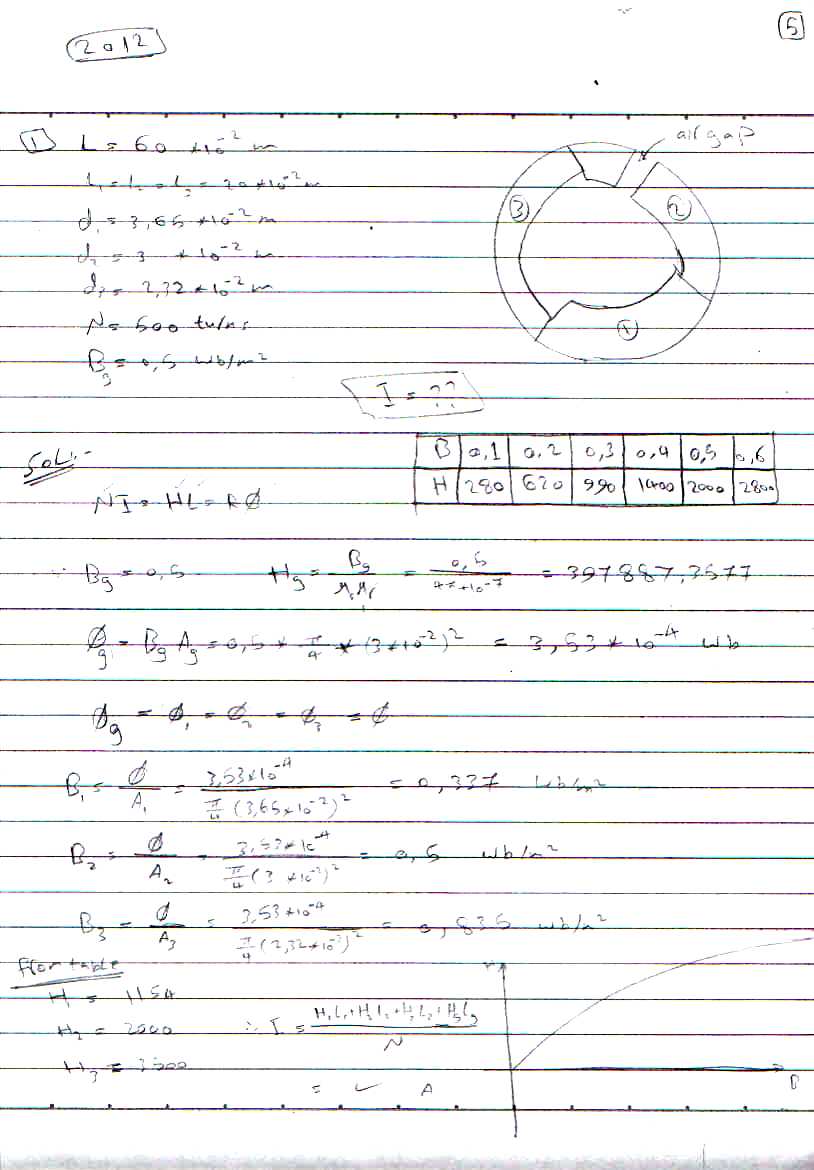 5
2012
① L = 60 *10^-2 m
air gap
L₁ = L₂ = L₃ = 20*10^-2 m
d₁ = 3,65 *10^-2 m
③
②
d₂ = 3 *10^-2 m
d₃ = 2,32 *10^-2 m
N = 500 turns
①
Bg = 0,5 wb/m²
I = ??
SOL:-
B 0,1 0,2 0,3 0,4 0,5 0,6
H 280 620 990 1400 2000 2800
NI = HL = RØ
∵ Bg = 0,5 Hg = Bg / μ₀μr = 0,5 / 4π*10^-7 = 397887,3577
Øg = Bg Ag = 0,5 * π/4 * (3*10^-2)² = 3,53 * 10^-4 wb
Øg = Ø₁ = Ø₂ = Ø₃ = Ø
B₁ = Ø / A₁ = 3,53*10^-4 / π/4 (3,65*10^-2)² = 0,337 wb/m²
B₂ = Ø / A₂ = 3,53*10^-4 / π/4 (3 *10^-2)² = 0,5 wb/m²
B₃ = Ø / A₃ = 3,53*10^-4 / π/4 (2,32*10^-2)² = 0,835 wb/m²
from table
H₁ = 1154
H₂ = 2000 ∴ I = H₁L₁+H₂L₂+H₃L₃+HgLg / N
H₃ = 3500
= ✓ A